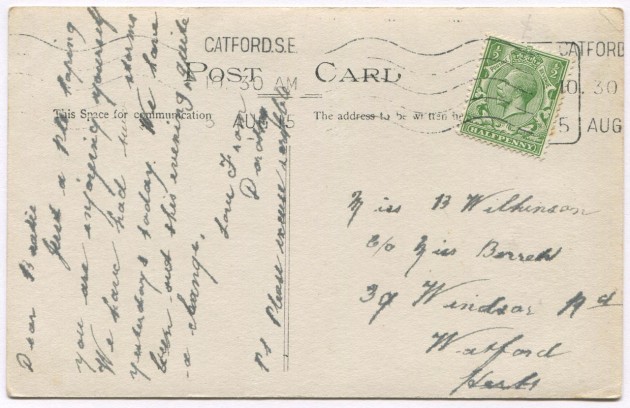 CATFORD.S.E.
10.30 AM
5 AUG 15
CATFORD
10.30
5 AUG
HALFPENNY
POST CARD
This Space for communication
The address to be written he
Dear Beatie
Just a P.C. hoping
you are enjoying yourself
We have had two storms
yesterday & today. We have
been out this evening, quite
a change.
Love from
Dorothy
PS Please excuse scribble
Miss B Wilkinson
c/o Miss
39 Windsor Rd
Watford
Herts